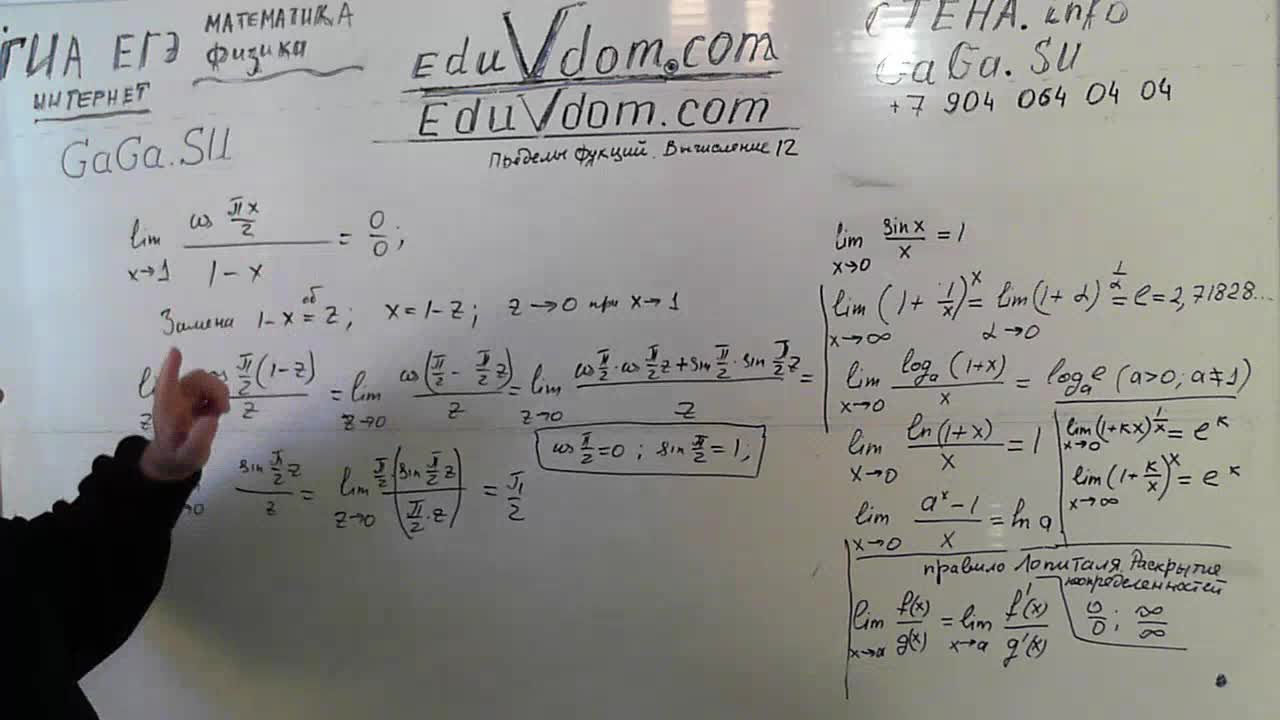 ГИА ЕГЭ МАТЕМАТИКА
физика
ИНТЕРНЕТ
GaGa.SU
EduVdom.com
EduVdom.com
Пределы фукций. Вычисление 12
СТЕНА.info
GaGa.SU
+7 904 064 04 04
lim x→1 cos πx/2 / 1-x = 0/0;
Замена 1-x об = z; x=1-z; z→0 при x→1
cos π/2(1-z) / z = lim z→0 cos(π/2 - π/2 z) / z = lim z→0 cos π/2 · cos π/2 z + sin π/2 · sin π/2 z / z =
cos π/2 = 0; sin π/2 = 1;
sin π/2 z / z = lim z→0 π/2 · (sin π/2 z) / (π/2 · z) = π/2
lim x→0 sin x / x = 1
lim x→∞ (1 + 1/x)^x = lim α→0 (1+α)^1/α = e = 2,71828...
lim x→0 log_a (1+x) / x = log_a e (a>0; a≠1)
lim x→0 ln(1+x) / x = 1
lim x→0 (1+кx)^1/x = e^к
lim x→∞ (1+к/x)^x = e^к
lim x→0 a^x - 1 / x = ln a
правило Лопиталя. Раскрытие
неопределенностей
lim x→a f(x)/g(x) = lim x→a f'(x)/g'(x)
0/0; ∞/∞